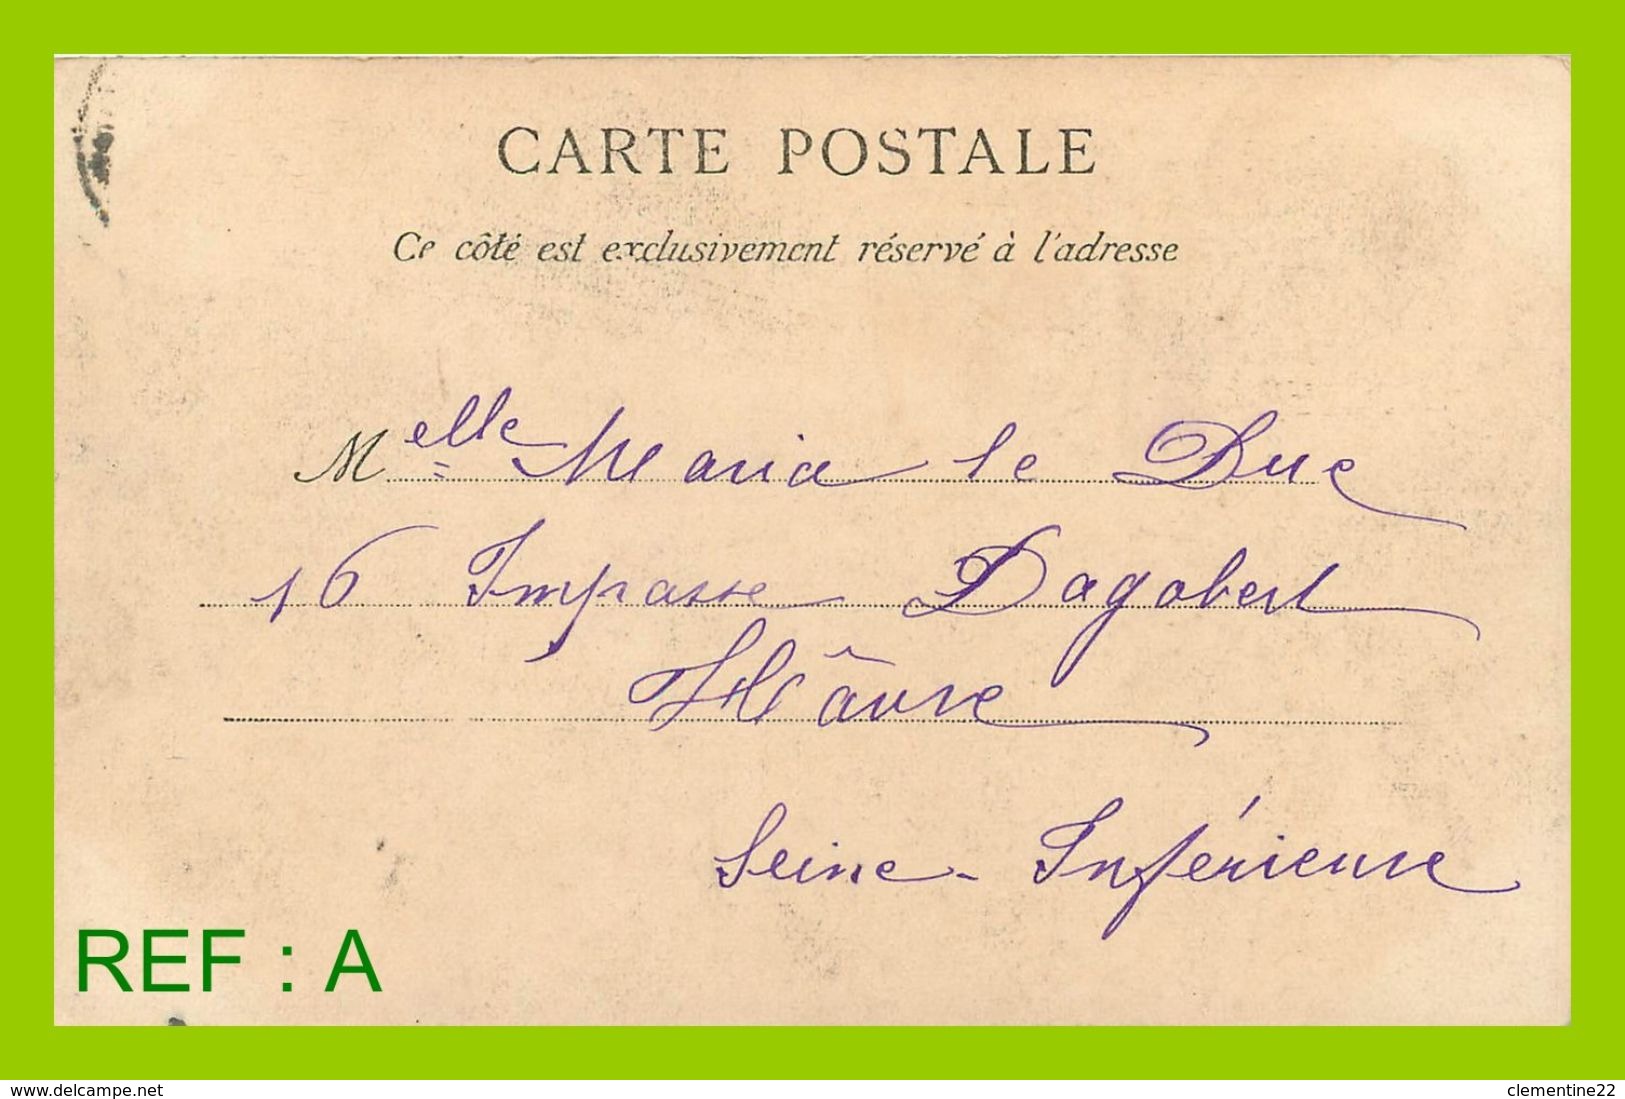 CARTE POSTALE
Ce côté est exclusivement réservé à l'adresse
Melle Maria le Duc
16 Impasse Dagobert
Hâvre
Seine-Inférieure
REF : A
www.delcampe.net
clementine22